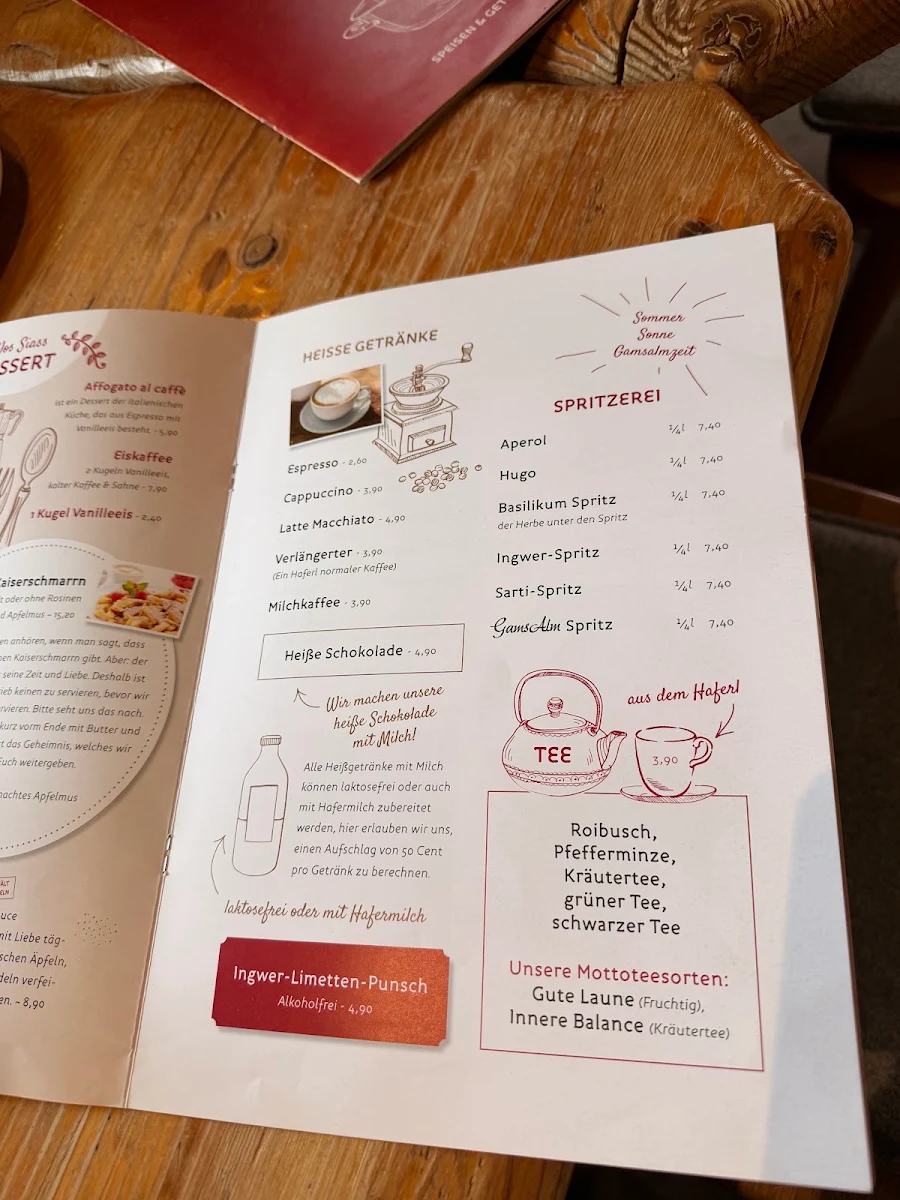 SPEISEN & GET
SSERT
Affogato al caffè
ist ein Dessert der italienischen
Küche, das aus Espresso mit
Vanilleeis besteht. - 5,90
Eiskaffee
2 Kugeln Vanilleeis,
kalter Kaffee & Sahne - 7,90
1 Kugel Vanilleeis - 2,40
Kaiserschmarrn
t oder ohne Rosinen
d Apfelmus - 15,20
en anhören, wenn man sagt, dass
en Kaiserschmarrn gibt. Aber: der
seine Zeit und Liebe. Deshalb ist
ieb keinen zu servieren, bevor wir
rvieren. Bitte seht uns das nach.
kurz vorm Ende mit Butter und
t das Geheimnis, welches wir
Euch weitergeben.
machtes Apfelmus
uce
mit Liebe täg-
schen Äpfeln,
deln verfei-
en. - 8,90
HEISSE GETRÄNKE
Espresso - 2,60
Cappuccino - 3,90
Latte Macchiato - 4,90
Verlängerter - 3,90
(Ein Haferl normaler Kaffee)
Milchkaffee - 3,90
Heiße Schokolade - 4,90
Wir machen unsere
heiße Schokolade
mit Milch!
Alle Heißgetränke mit Milch
können laktosefrei oder auch
mit Hafermilch zubereitet
werden, hier erlauben wir uns,
einen Aufschlag von 50 Cent
pro Getränk zu berechnen.
laktosefrei oder mit Hafermilch
Ingwer-Limetten-Punsch
Alkoholfrei - 4,90
Sommer
Sonne
Gamsalmzeit
SPRITZEREI
Aperol 1/4l 7,40
Hugo 1/4l 7,40
Basilikum Spritz 1/4l 7,40
der Herbe unter den Spritz
Ingwer-Spritz 1/4l 7,40
Sarti-Spritz 1/4l 7,40
GamsAlm Spritz 1/4l 7,40
aus dem Haferl
TEE
3,90
Roibusch,
Pfefferminze,
Kräutertee,
grüner Tee,
schwarzer Tee
Unsere Mottoteesorten:
Gute Laune (Fruchtig),
Innere Balance (Kräutertee)